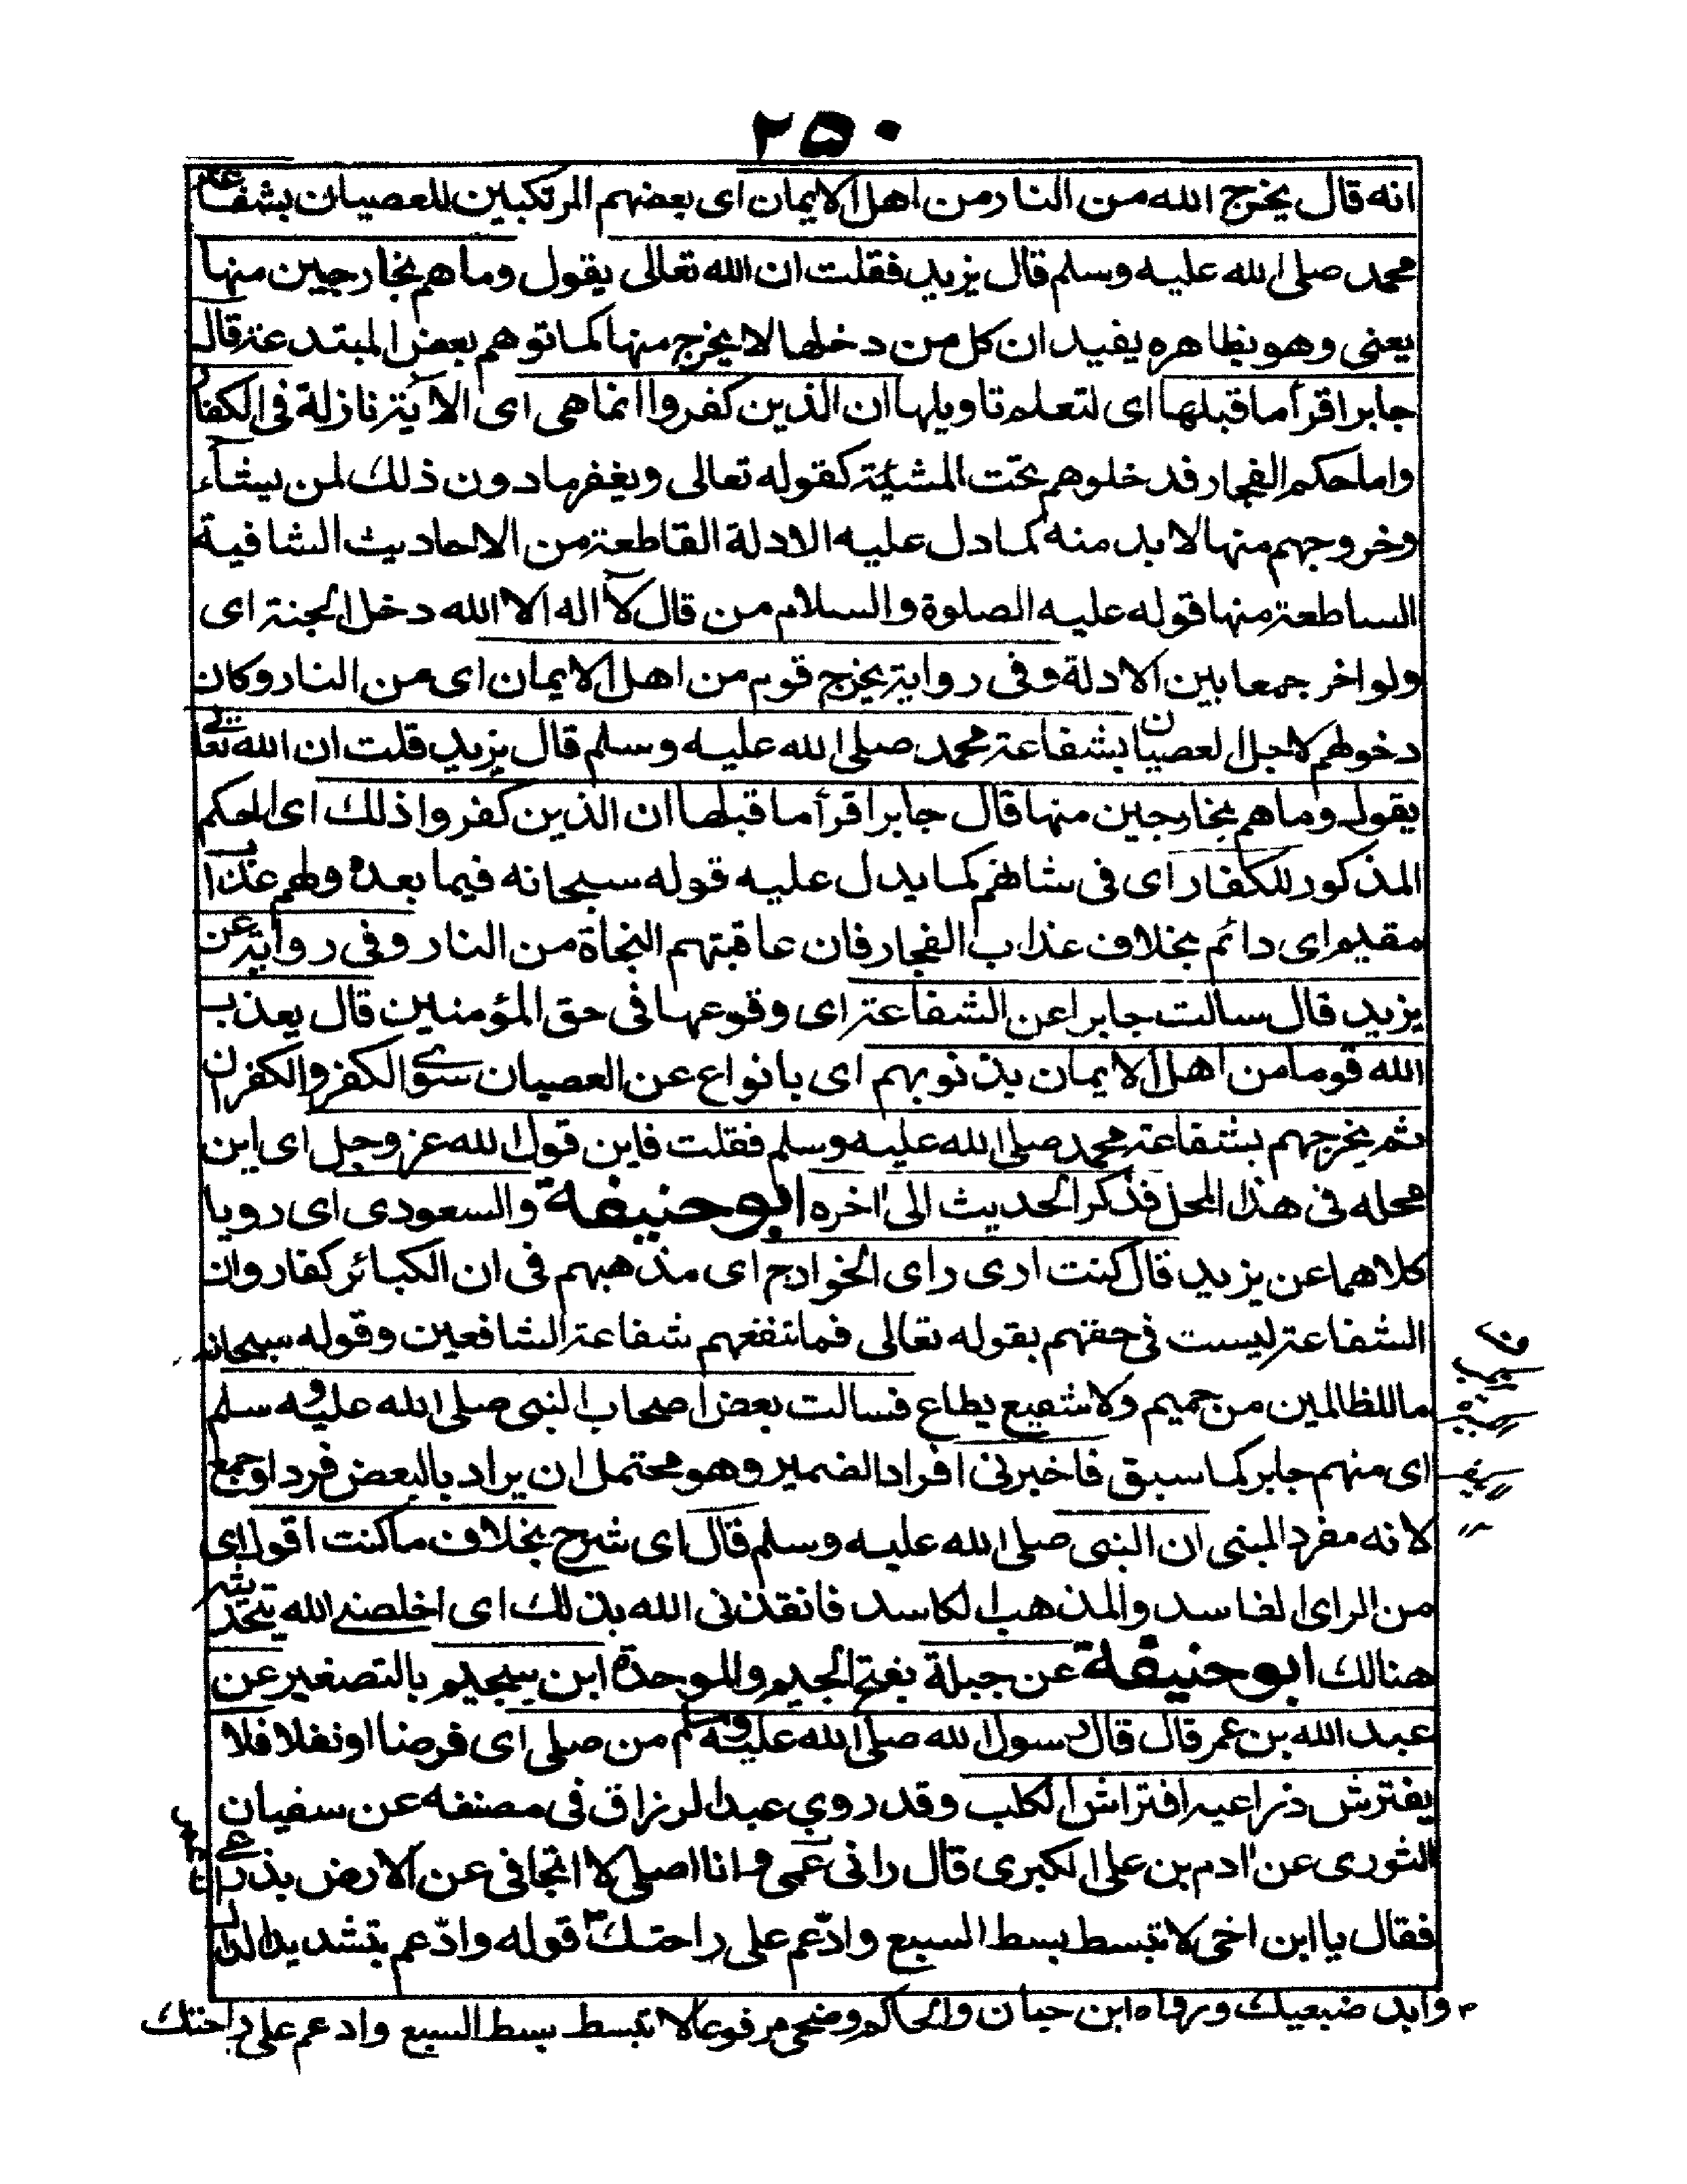 ٢٥٠
انه قال يخرج الله من النار من اهل الايمان اى بعضهم المرتكبين للعصيان بشفاعة
محمد صلى الله عليه وسلم قال يزيد فقلت ان الله تعالى يقول وما هم بخارجين منها
يعنى وهو بظاهره يفيد ان كل من دخلها لا يخرج منها كما توهم بعض المبتدعة قال
جابر اقرأ ما قبلها اى لتعلم تاويلها ان الذين كفروا انما هى اى الآية نازلة فى الكفار
واما حكم الفجار فدخلوهم تحت المشئية كقوله تعالى ويغفر ما دون ذلك لمن يشآء
وخروجهم منها لا بد منه كما دل عليه الادلة القاطعة من الاحاديث الشافية
الساطعة منها قوله عليه الصلوة والسلام من قال لآ اله الا الله دخل الجنة اى
ولو اخر جمعا بين الادلة وفى رواية يخرج قوم من اهل الايمان اى من النار وكان
دخولهم لاجل العصيان بشفاعة محمد صلى الله عليه وسلم قال يزيد قلت ان الله تعالى
يقول وما هم بخارجين منها قال جابر اقرأ ما قبلها ان الذين كفروا ذلك اى الحكم
المذكور للكفار اى فى شانهم كما يدل عليه قوله سبحانه فيما بعده ولهم عذاب
مقيم اى دائم بخلاف عذاب الفجار فان عاقبتهم النجاة من النار وفى رواية عن
يزيد قال سالت جابرا عن الشفاعة اى وقوعها فى حق المؤمنين قال يعذب
الله قوما من اهل الايمان بذنوبهم اى بانواع عن العصيان سوى الكفر والكفران
ثم يخرجهم بشفاعة محمد صلى الله عليه وسلم فقلت فاين قول الله عز وجل اى اين
محله فى هذا المحل فذكر الحديث الى اخره ابو حنيفة والسعودى اى رويا
كلاهما عن يزيد قال كنت ارى راى الخوارج اى مذهبهم فى ان الكبائر كفار وان
الشفاعة ليست فى حقهم بقوله تعالى فما تنفعهم شفاعة الشافعين وقوله سبحانه
ما للظالمين من حميم ولا شفيع يطاع فسالت بعض اصحاب النبى صلى الله عليه وسلم
اى منهم جابر كما سبق فاخبرنى افراد الضمير وهو محتمل ان يراد بالبعض فردا وجمع
لانه مفرد المبنى ان النبى صلى الله عليه وسلم قال اى شرح بخلاف ما كنت اقول اى
من الراى الفاسد والمذهب الكاسد فانقذنى الله بذلك اى اخلصنى الله
هنالك ابو حنيفة عن جبلة بفتح الجيم والموحدة ابن سحيم بالتصغير عن
عبد الله بن عمر قال قال رسول الله صلى الله عليه وسلم من صلى اى فرضا او نفلا فلا
يفترش ذراعيه افتراش الكلب وقد روى عبد الرزاق فى مصنفه عن سفيان
الثورى عن ادم بن على الكبرى قال رانى عمى وانا اصلى لا اتجافى عن الارض بذراعى
فقال يا ابن اخى لا تبسط بسط السبع وادّعم على راحتك قوله وادّعم بتشديد الدال
وابد ضبعيك ورواه ابن حبان والحاكم مرفوعا لا تبسط بسط السبع وادعم على راحتك